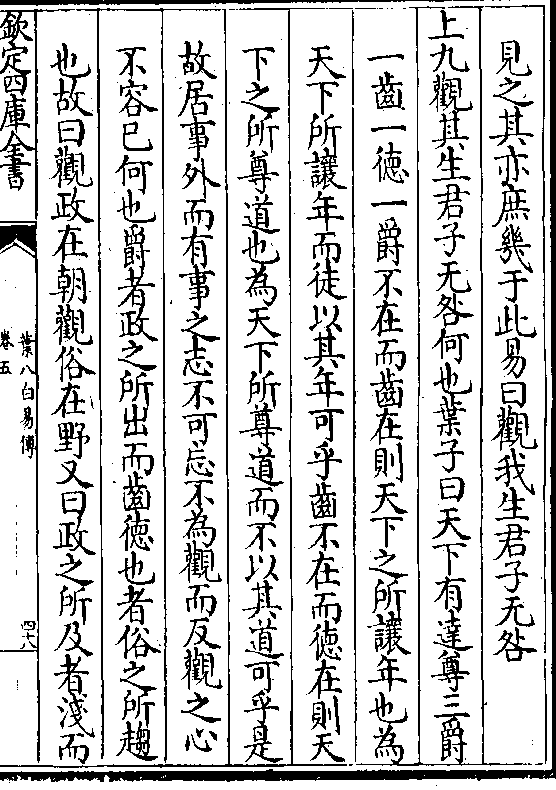 見之其亦庶幾于此易曰觀我生君子无咎
上九觀其生君子无咎何也葉子曰天下有達尊三爵
一齒一德一爵不在而齒在則天下之所讓年也為
天下所讓年而徒以其年可乎齒不在而德在則天
下之所尊道也為天下所尊道而不以其道可乎是
故居事外而有事之志不可忘不為觀而反觀之心
不容已何也爵者政之所出而齒德也者俗之所趨
也故曰觀政在朝觀俗在野又曰政之所及者淺而
欽定四庫全書
葉八白易傳
卷五
四十八